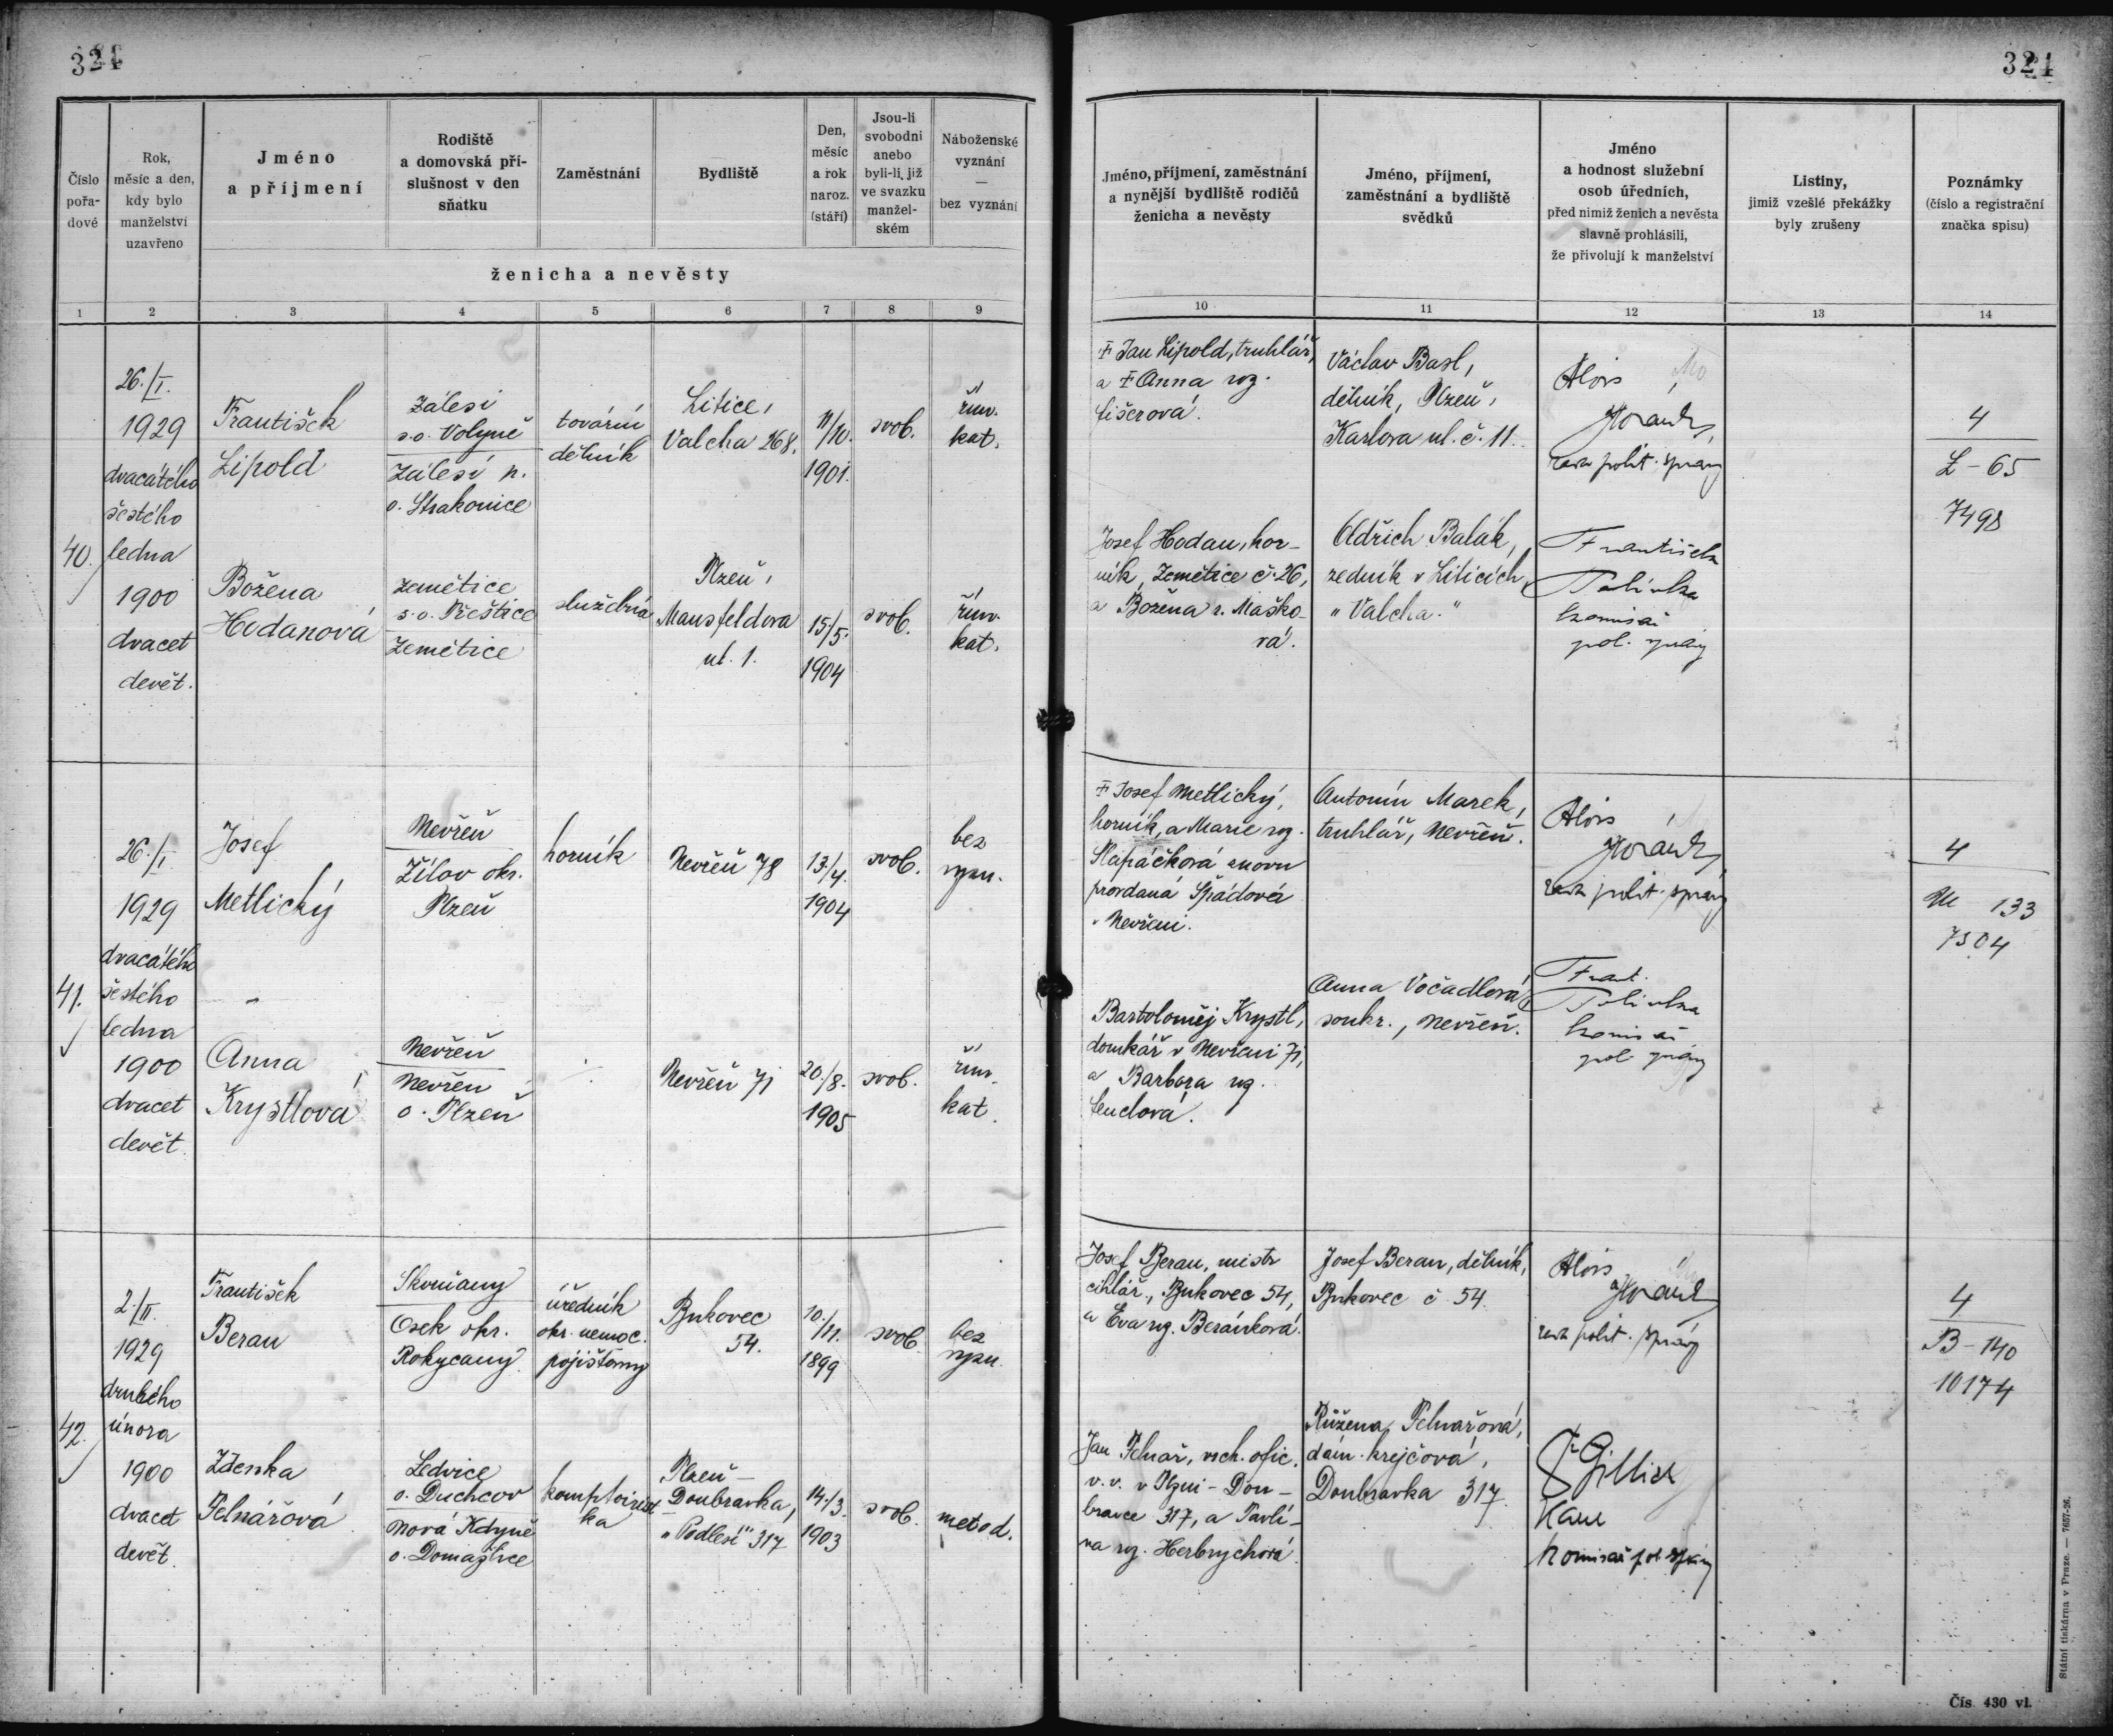 324
324
Číslo
pořa-
dové
Rok,
měsíc a den,
kdy bylo
manželství
uzavřeno
Jméno
a příjmení
Rodiště
a domovská pří-
slušnost v den
sňatku
Zaměstnání
Bydliště
Den,
měsíc
a rok
naroz.
(stáří)
Jsou-li
svobodni
anebo
byli-li již
ve svazku
manžel-
ském
Náboženské
vyznání
—
bez vyznání
ženicha a nevěsty
Jméno, příjmení, zaměstnání
a nynější bydliště rodičů
ženicha a nevěsty
Jméno, příjmení,
zaměstnání a bydliště
svědků
Jméno
a hodnost služební
osob úředních,
před nimiž ženich a nevěsta
slavně prohlásili,
že přivolují k manželství
Listiny,
jimiž vzešlé překážky
byly zrušeny
Poznámky
(číslo a registrační
značka spisu)
1 2 3 4 5 6 7 8 9 10 11 12 13 14
40.
26./I.
1929
dvacátého
šestého
ledna
1900
dvacet
devět.
František
Lipold
Zálesí
s.o. Volyně
Zálesí p.
o. Strakonice
tovární
dělník
Litice,
Valcha 268.
11/10.
1901.
svob.
řím.
kat.
† Jan Lipold, truhlář,
a † Anna roz.
Fišerová.
Václav Basl,
dělník, Plzeň,
Karlova ul. č. 11.
Alois
rada polit. správy
4
L - 65
7498
Božena
Hodanová
Zemětice
s.o. Přeštice
Zemětice
služebná
Plzeň,
Mansfeldova
ul. 1.
15/5.
1904
svob.
řím.
kat.
Josef Hodan, hor-
ník, Zemětice č. 26,
a Božena r. Maško-
vá.
Oldřich Balák,
zedník v Liticích
„Valcha."
František
Polívka
komisař
pol. správy
41.
26./I.
1929
dvacátého
šestého
ledna
1900
dvacet
devět.
Josef
Metlický
Nevřeň
Žilov okr.
Plzeň
horník
Nevřeň 78
13/4.
1904
svob.
bez
vyzn.
† Josef Metlický,
horník, a Marie roz.
Slapáčková znovu
provdaná Špádová
v Nevřeni.
Antonín Marek,
truhlář, Nevřeň.
Alois
rada polit. správy
4
M 133
7504
Anna
Krystlová
Nevřeň
Nevřeň
o. Plzeň
Nevřeň 71
20./8.
1905
svob.
řím.
kat.
Bartoloměj Krystl,
domkář v Nevřeni 71,
a Barbora roz.
Anna Vočadlová,
soukr., Nevřeň.
Frant.
Polívka
komisař
pol. správy
42.
2./II.
1929
druhého
února
1900
dvacet
devět.
František
Beran
Skořičany
Osek okr.
Rokycany
úředník
okr. nemoc.
pojišťovny
Bukovec
54.
10./11.
1899
svob.
bez
vyzn.
Josef Beran, mistr
cihlář, Bukovec 54,
a Eva roz. Beránková.
Josef Beran, dělník,
Bukovec č 54.
Alois
rada polit. správy
4
B - 140
10174
Zdenka
Pelnářová
Ledvice
o. Duchcov
Nová Kdyně
o. Domažlice
komptoirist
ka
Plzeň -
Doubravka,
„Podlesí" 317
14./3.
1903
svob.
metod.
Jan Pelnář, vrch. ofic.
v.v. v Plzni - Dou-
bravce 317, a Pavlí-
na roz. Herbrychová.
Růžena Pelnařová,
dám. krejčová,
Doubravka 317.
komisař pol. správy
Státní tiskárna v Praze. — 7657-26.
Čís. 430 vl.